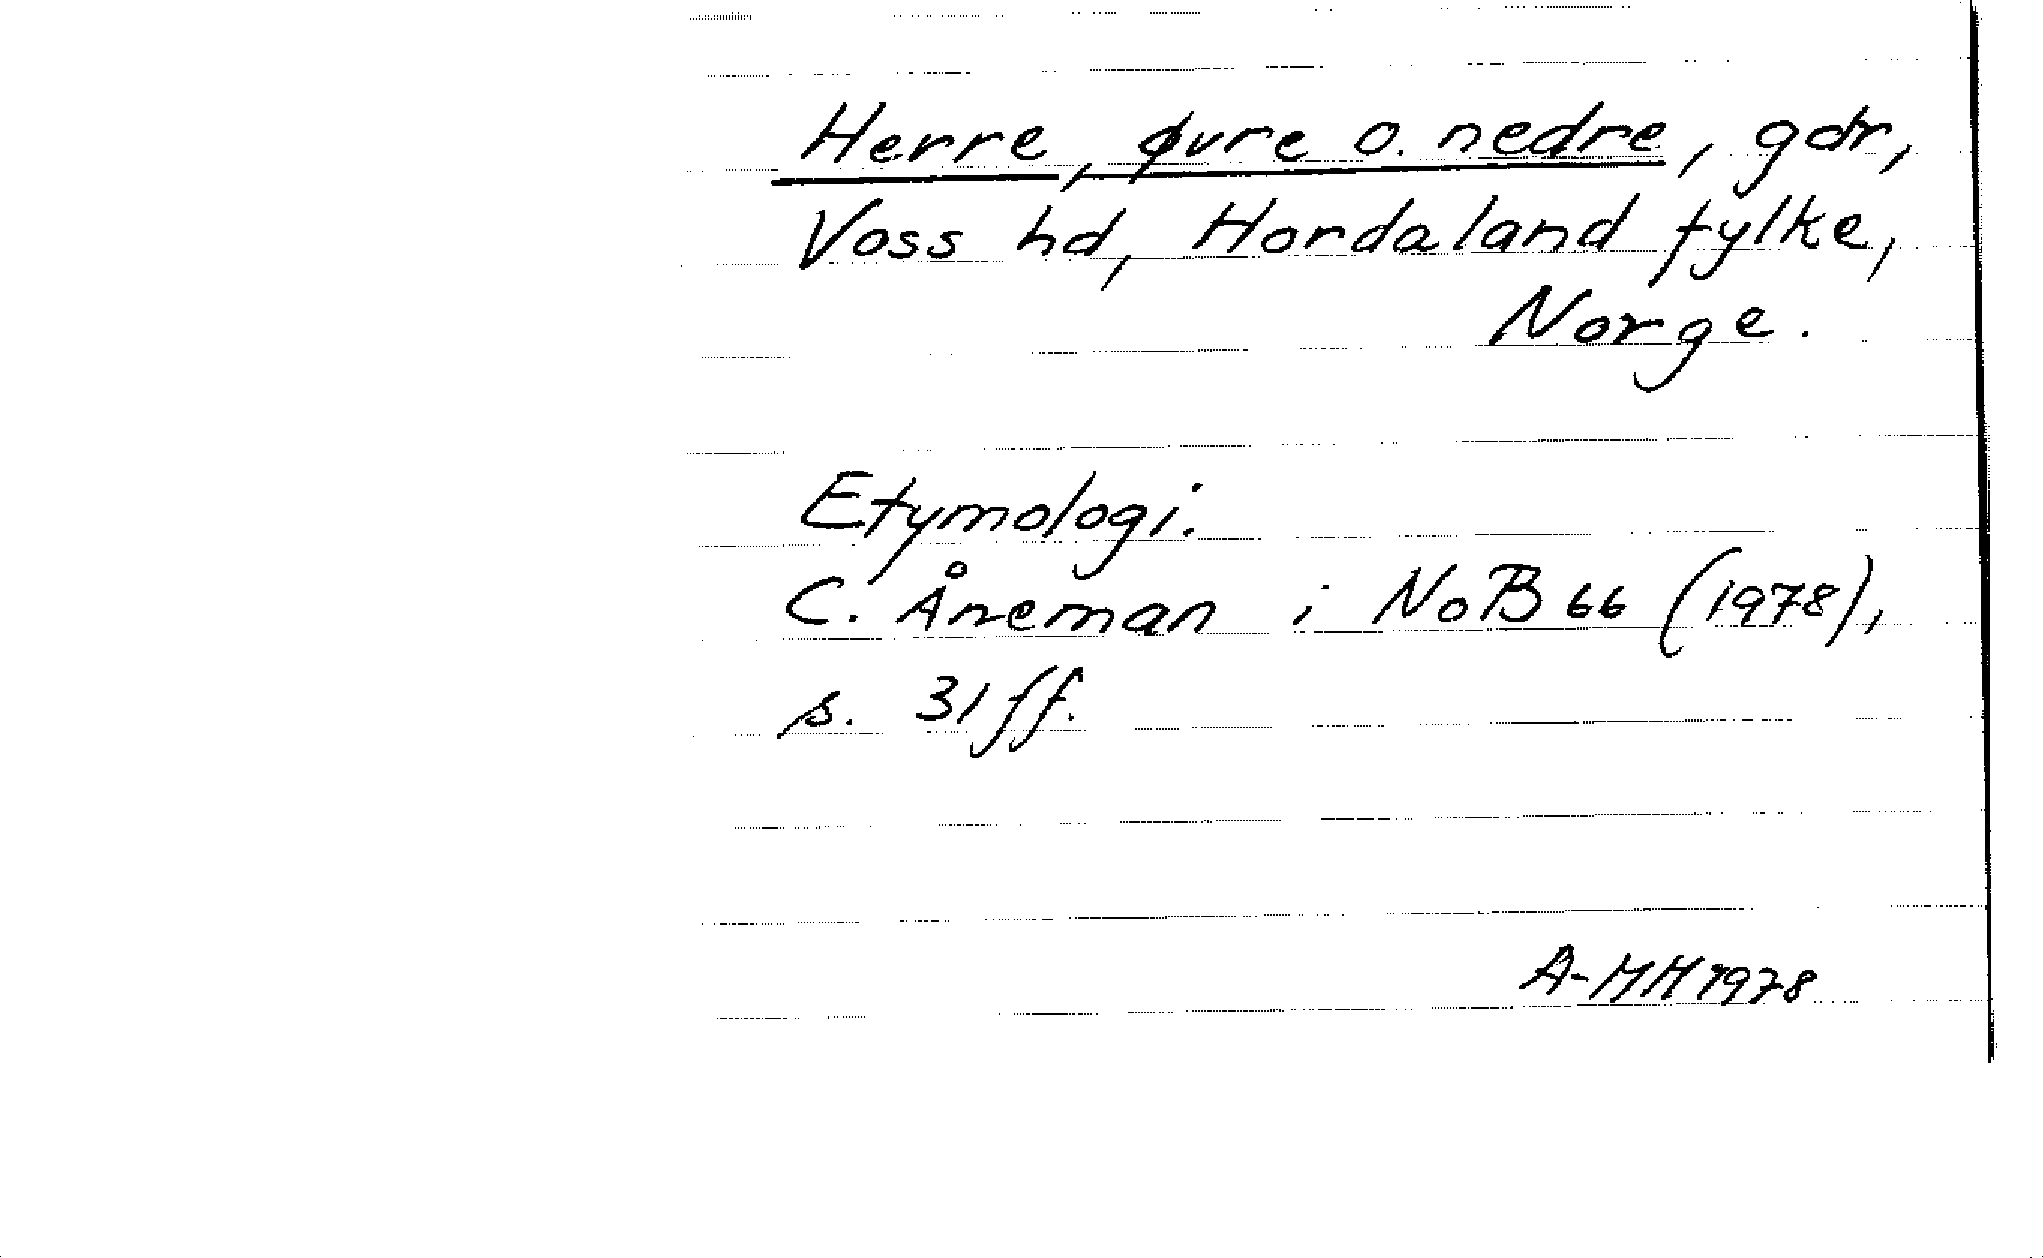 Herre, øvre o. nedre, gdr,
Voss hd, Hordaland fylke,
Norge.
Etymologi.
C. Åneman i NoB 66 (1978),
s. 31 ff.
A-MH 1978